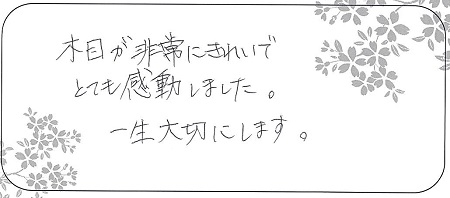 木目が非常にきれいで
とても感動しました。
一生大切にします。